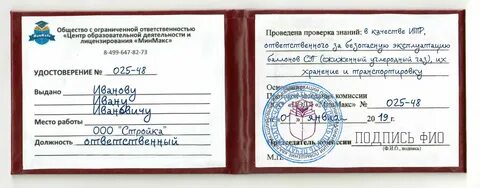 Общество с ограниченной ответственностью
«Центр образовательной деятельности и
лицензирования «МинМакс»
8-499-647-82-73
УДОСТОВЕРЕНИЕ № 025-48
Выдано Иванову
Ивану
Ивановичу
Место работы
ООО "Стройка"
Должность ответственный
Проведена проверка знаний: в качестве ИТР,
ответственного за безопасную эксплуатацию
баллонов СП (сжиженный углеродный газ), их
хранение и транспортировку
Основание
Протокол заседания комиссии
«МинМакс» № 025-48
от «01» января 2019 г.
Председатель комиссии ПОДПИСЬ ФИО
(Ф.И.О., подпись)
М.П.